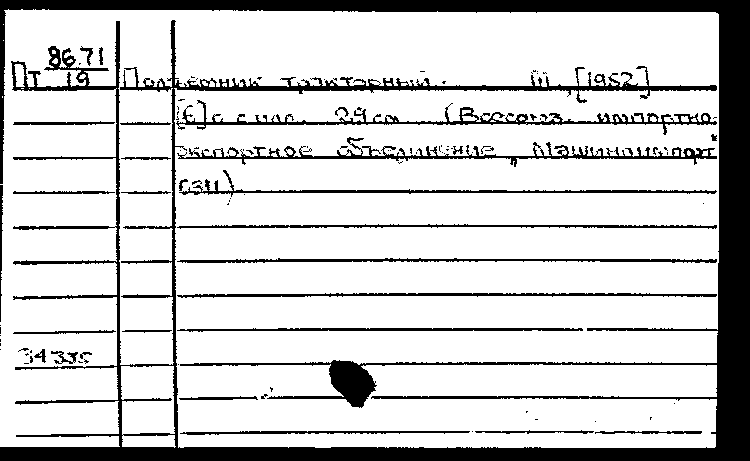 86.71
Пт 19 Подъемник тракторный. М., [1952]
[6] с. с илл. 29 см (Всесоюз. импортно-
экспортное объединение „Машиноимпорт"
СЭИ)
34335